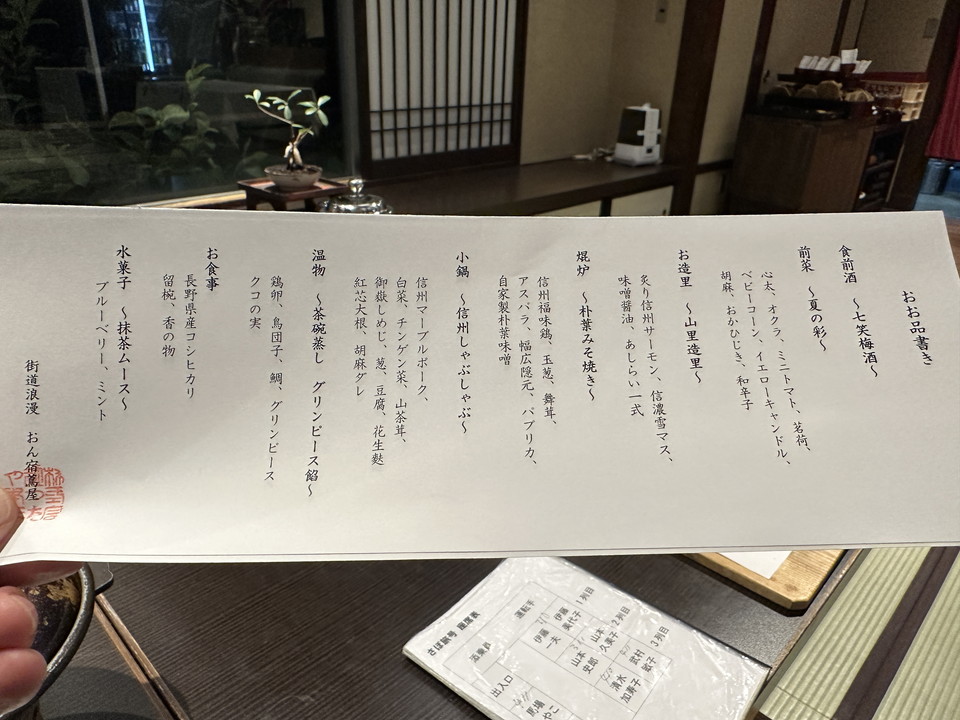 おお品書き
食前酒　～七笑梅酒～
前菜　～夏の彩～
心太、オクラ、ミニトマト、茗荷、
ベビーコーン、イエローキャンドル、
胡麻、おかひじき、和辛子
お造里　～山里造里～
炙り信州サーモン、信濃雪マス、
味噌醤油、あしらい一式
焜炉　～朴葉みそ焼き～
信州福味鶏、玉葱、舞茸、
アスパラ、幅広隠元、パプリカ、
自家製朴葉味噌
小鍋　～信州しゃぶしゃぶ～
信州マーブルポーク、
白菜、チンゲン菜、山茶茸、
御嶽しめじ、葱、豆腐、花生麩
紅芯大根　胡麻ダレ
温物　～茶碗蒸し　グリンピース餡～
鶏卵、鳥団子、鯛、グリンピース
クコの実
お食事
長野県産コシヒカリ
留椀、香の物
水菓子　～抹茶ムース～
ブルーベリー、ミント
街道浪漫　おん宿蔦屋
座席表
運転手
添乗員
出入口
1列目
伊藤 美代子
伊藤 一夫
2列目
山本 久美子
山本 史郎
3列目
武村 敏子
清水 加寿子
馬場